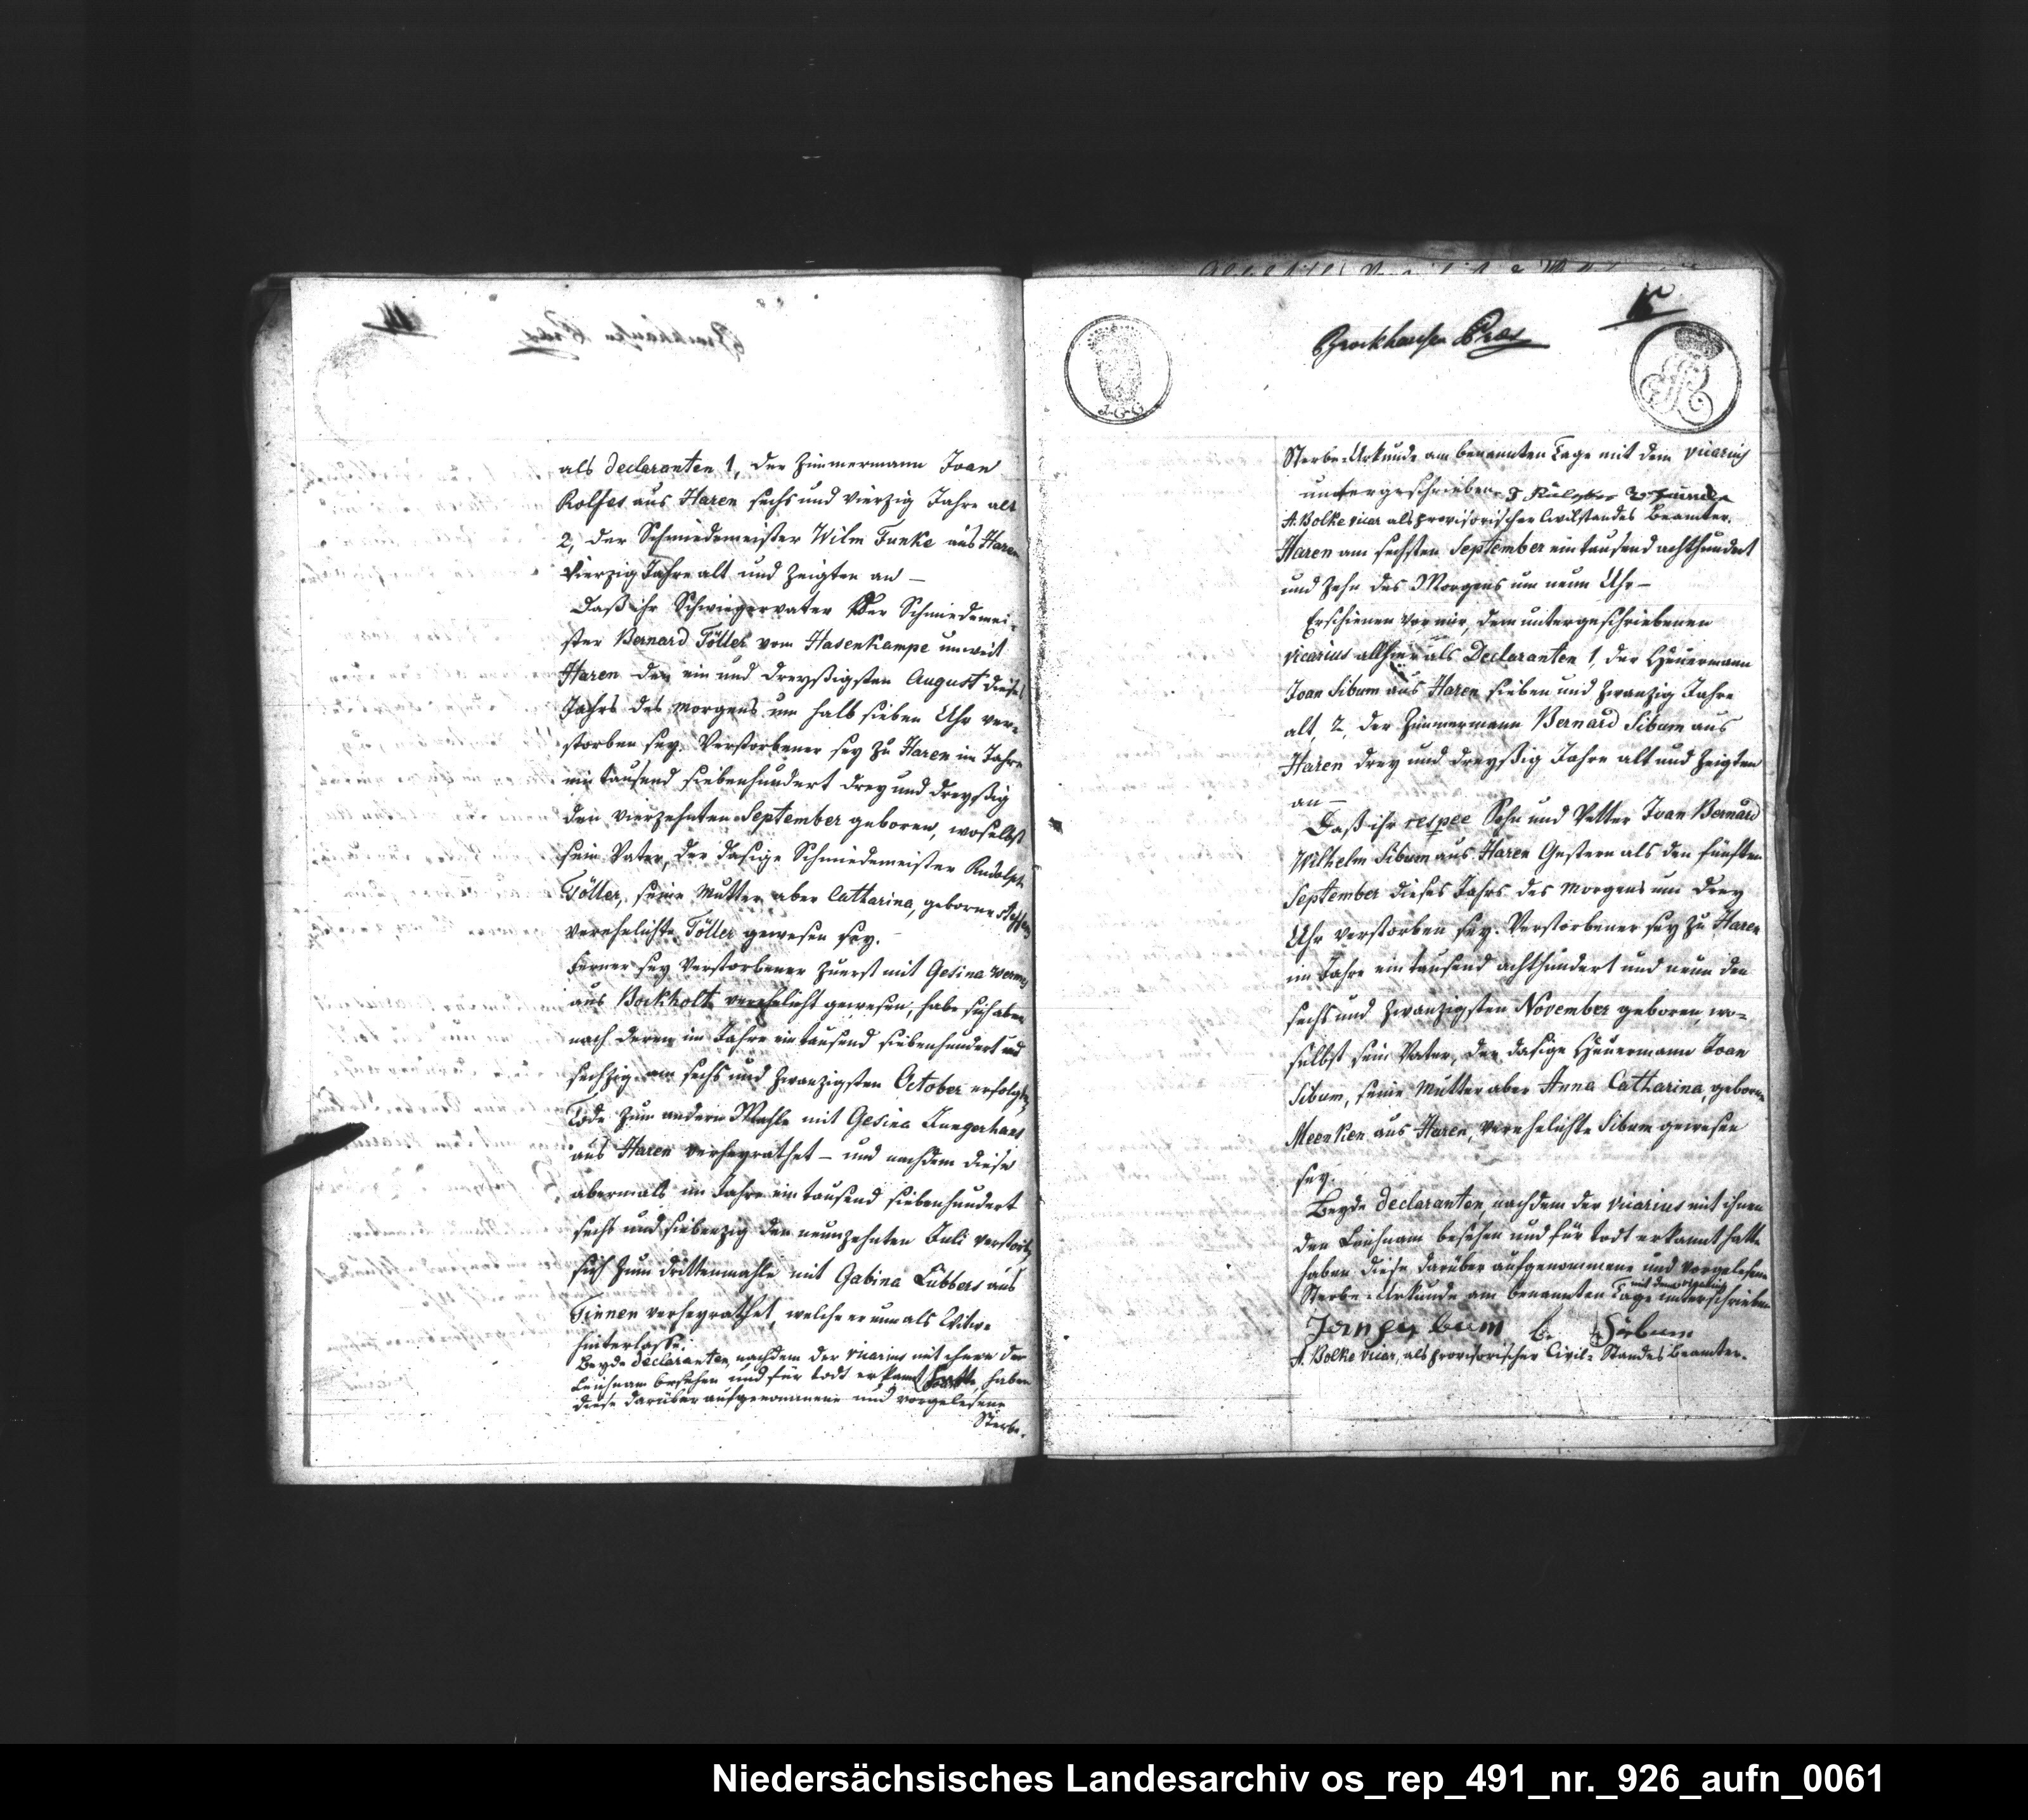 als Declaranten 1, der Zimmermann Joan
Rolfes aus Haren sechs und vierzig Jahre alt
2, der Schmiedemeister Wilm Funke aus Haren
vierzig Jahre alt und zeigten an –
Daß ihr Schwiegervater der Schmiedemei-
ster Bernard Töller vom Hasenkampe unweit
Haren den ein und dreyßigsten August dieses
Jahrs des morgens um halb sieben Uhr ver-
storben sey. Verstorbener sey zu Haren im Jahre
ein tausend siebenhundert drey und dreyßig
den vierzehnten September geboren, woselbst
sein Vater, der dasige Schmiedemeister Rudolph
Töller, seine Mutter aber Catharina, geborne
verehelichte Töller gewesen sey.
Ferner sey Verstorbener zuerst mit Gesina
aus Bockholt verehelicht gewesen, habe sich aber
nach deren im Jahre ein tausend siebenhundert und
sechzig am sechs und zwanzigsten October erfolgten
Tode zum andern Mahle mit Gesina
aus Haren verheyrathet – und nachdem diese
abermals im Jahre ein tausend siebenhundert
sechs und siebenzig den neunzehnten Juli verstorben
sich zum drittenmahle mit Gabina Lübbers aus
Tinnen verheyrathet, welche er nun als Witwe
hinterlasse.
Beyde Declaranten, nachdem der vicarius mit ihnen den
Leichnam besehen und für todt erkannt hatte, haben
diese darüber aufgenommene und vorgelesene
Sterbe-
15
Brockhausen
Sterbe-Urkunde am benannten Tage mit dem vicarius
untergeschrieben.
A. Bolke vicar als provisorischer Civilstandes Beamter.
Haren am sechsten September ein tausend achthundert
und zehn des Morgens um neun Uhr –
Erschienen vor mir, dem untergeschriebenen
vicarius allhier als Declaranten 1, der Heuermann
Joan Sibum aus Haren sieben und zwanzig Jahre
alt, 2, der Zimmermann Bernard Sibum aus
Haren drey und dreyßig Jahre alt und zeigten
an –
Daß ihr respee Sohn und Vetter Joan Bernard
Wilhelm Sibum aus Haren Gestern als den fünften
September dieses Jahrs des morgens um drey
Uhr verstorben sey. Verstorbener sey zu Haren
im Jahre ein tausend achthundert und neun den
sechs und zwanzigsten November geboren, wo-
selbst sein Vater, der dasige Heuermann Joan
Sibum, seine Mutter aber Anna Catharina, geborne
Meenken aus Haren, verehelichte Sibum gewesen
sey.
Beyde Declaranten, nachdem der vicarius mit ihnen
den Leichnam besehen und für todt erkannt hatte
haben diese darüber aufgenommene und vorgelesene
Sterbe-Urkunde am benannten Tage mit dem vicarius unterschrieben
Jan Sybum B. H Siebum
A. Bolke vicar, als provisorischer Civil-Standes beamter.
Niedersächsisches Landesarchiv os_rep_491_nr._926_aufn_0061